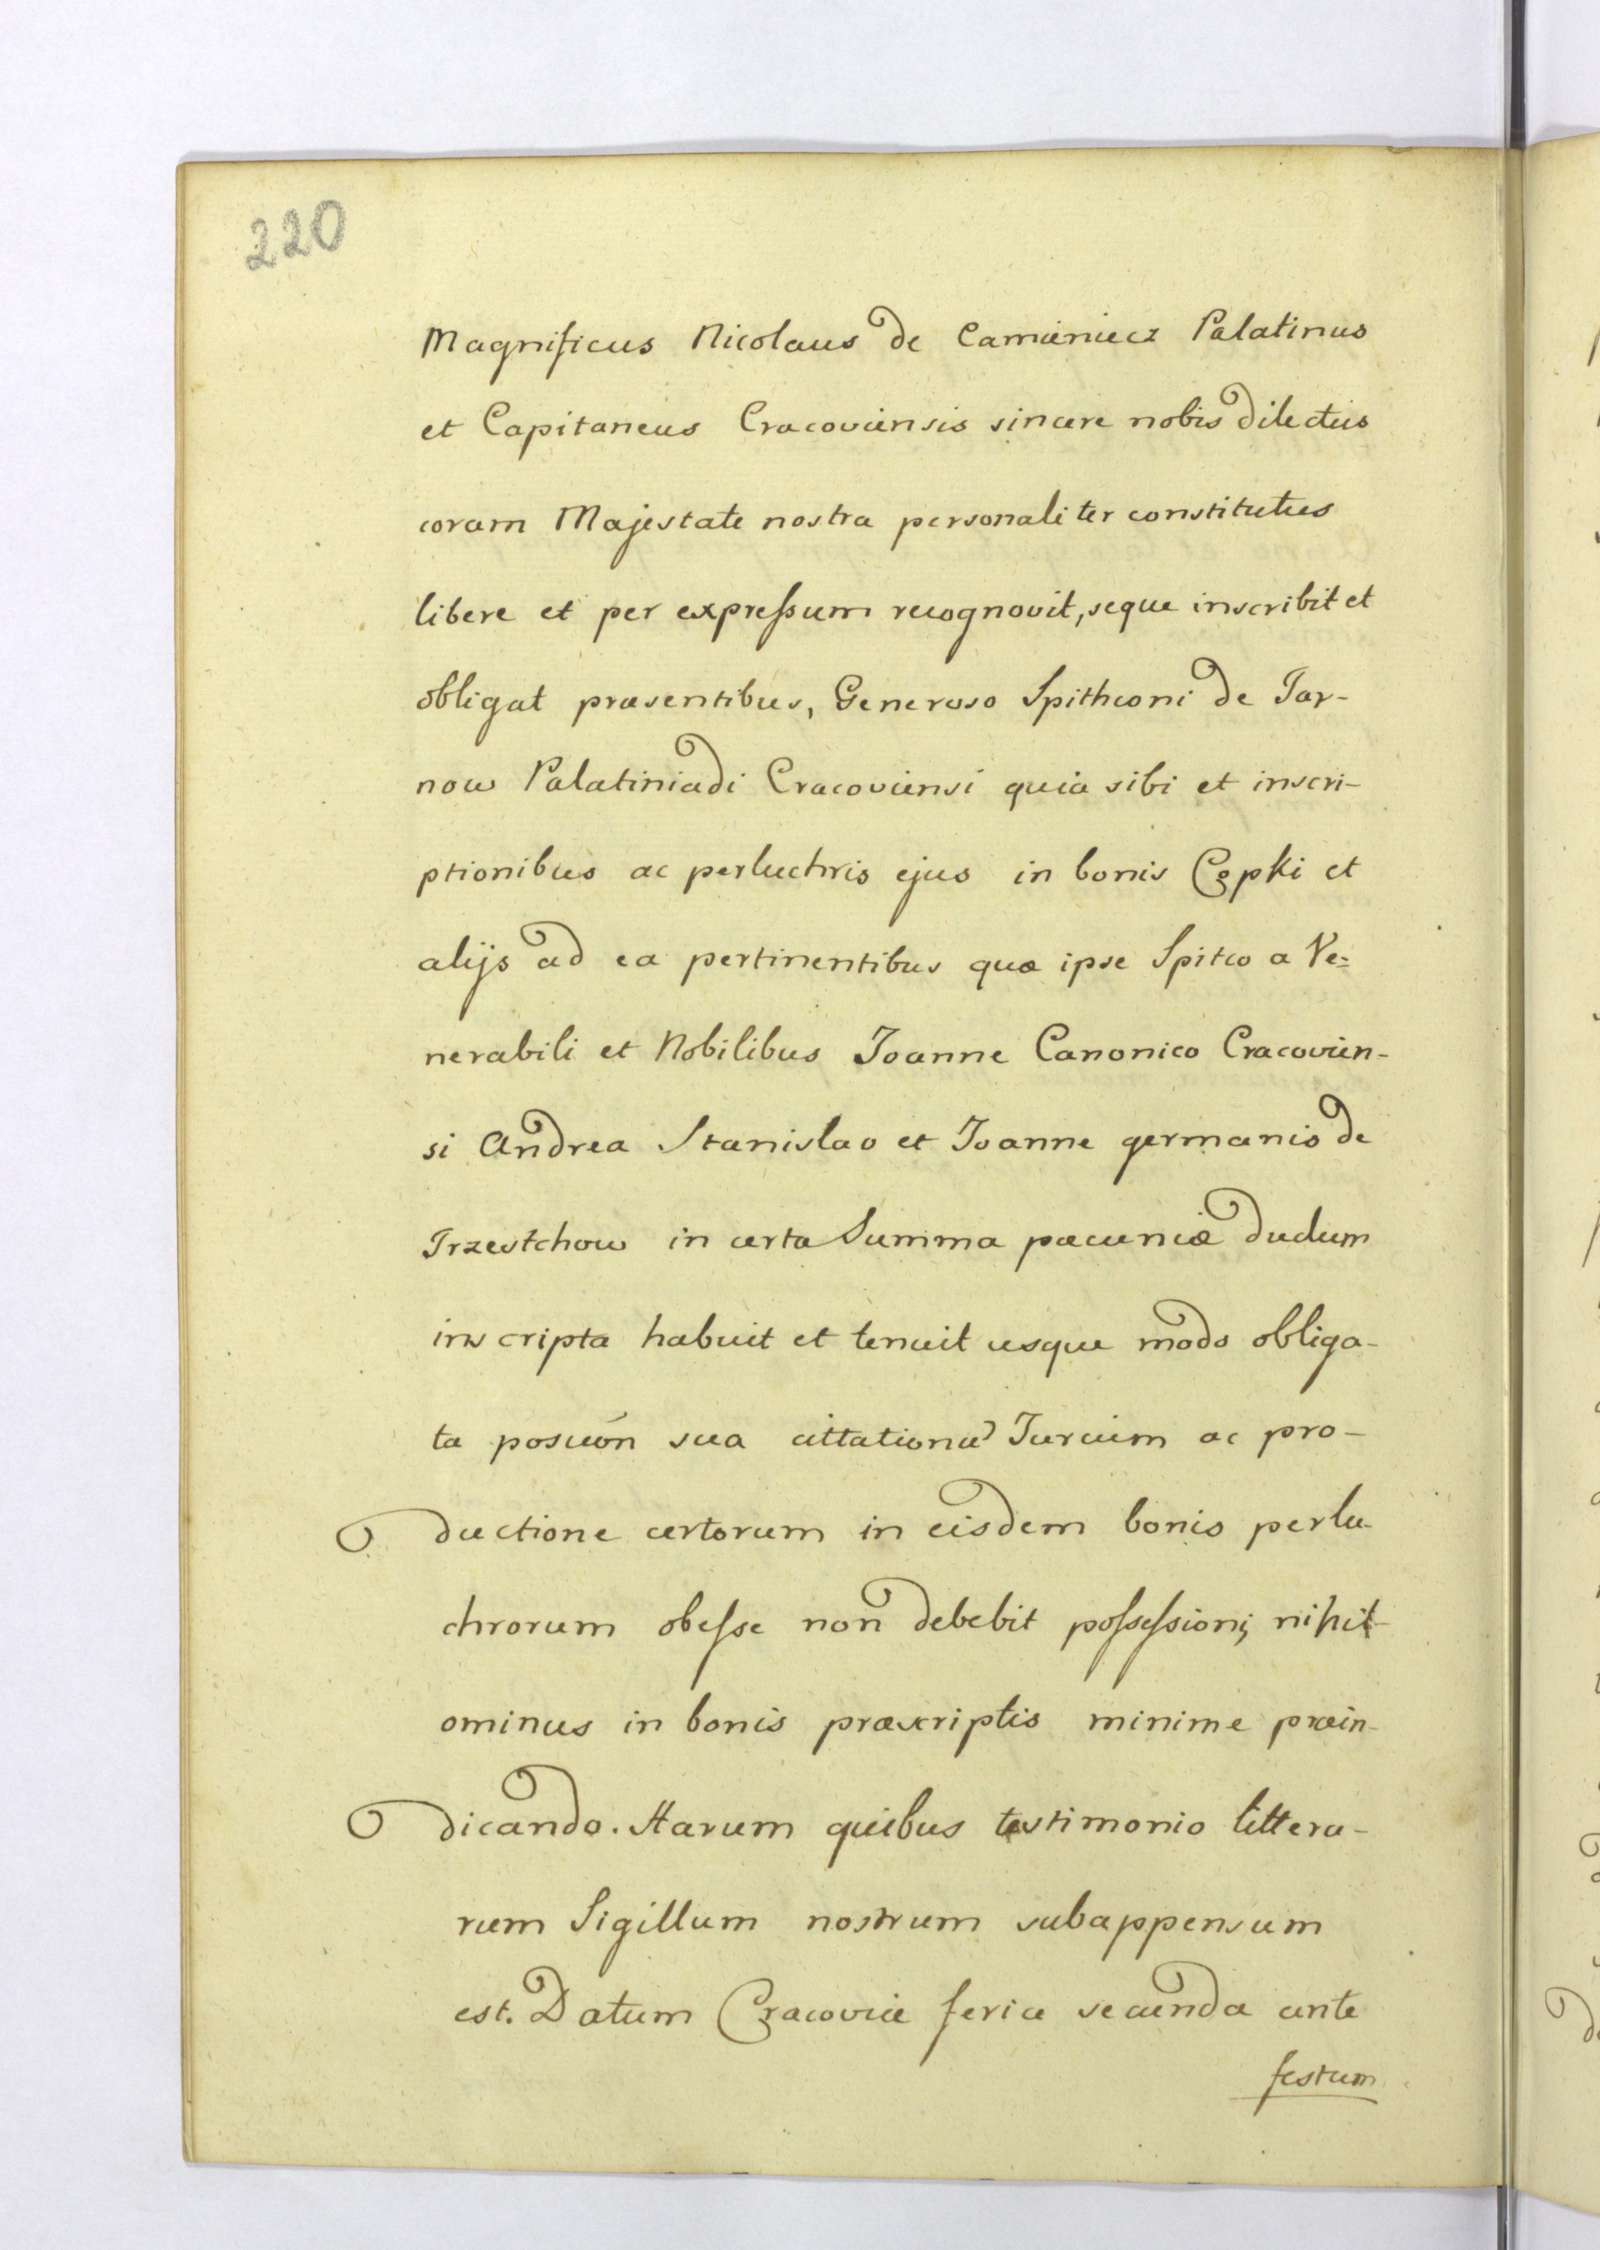 220
Magnificus Nicolaus de Camieniecz Palatinus
et Capitaneus Cracoviensis sincere nobis dilectus
coram Majestate nostra personaliter constitutus
libere et per expressum recognovit, seque inscribit et
obligat præsentibus, Generoso Spithconi de Tar-
now Palatiniadi Cracoviensi quia sibi et inscri-
ptionibus ac perluchris ejus in bonis Czepki et
alijs ad ea pertinentibus quæ ipse Spitco a Ve=
nerabili et Nobilibus Joanne Canonico Cracovien-
si Andrea Stanislao et Joanne germanis de
Trzestchow in certa Summa pæcuniæ dudum
inscripta habuit et tenuit usque modo obliga-
ta sua Jurium ac pro-
ductione certorum in eisdem bonis perlu-
chrorum obesse non debebit possessioni, nihil-
ominus in bonis præscriptis minime præiu-
dicando. Harum quibus testimonio littera-
rum Sigillum nostrum subappensum
est. Datum Cracoviæ feria secunda ante
festum